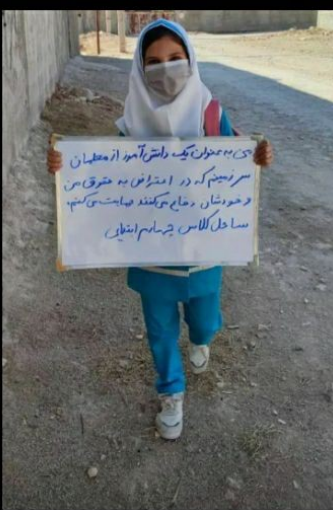 من به عنوان یک دانش آموز از معلمان
سرزمینم که در اعتراض به حقوق من
و خودشان دفاع می کنند حمایت می کنم.
ساحل کلاس چهارم ابتدایی